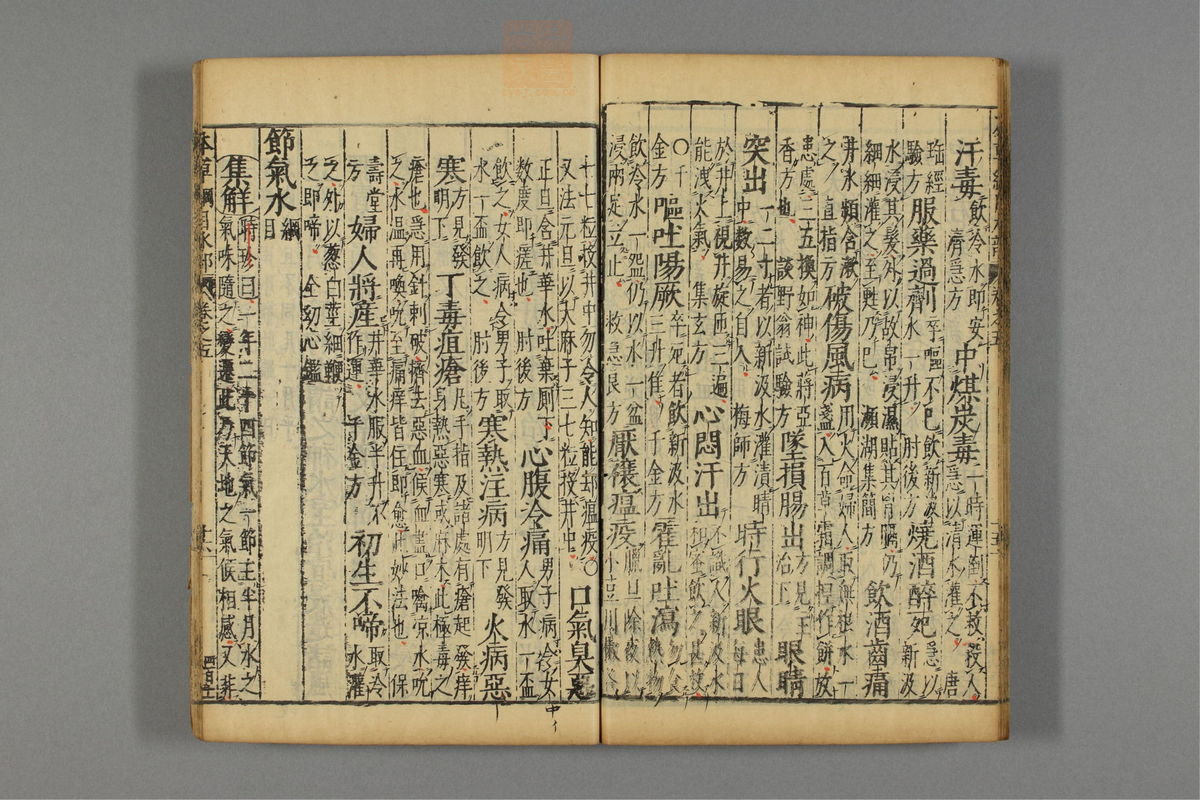 汗毒
飲冷水即安
濟急方
中煤炭毒
一時運倒不救殺人
急以清水灌之 唐
瑤經
驗方
服藥過劑
卒嘔不已飲新汲
水一升 肘後方
燒酒醉死
急以
新汲
水浸其髮外以故帛浸濕貼其胸膈仍
細細灌之至甦乃已 瀕湖集簡方
飲酒齒痛
井水頻含漱
之 直指方
破傷風病
用火命婦人取無根水一
盞入百草霜調捏作餅放
患處三五換如神此蔣亞
香方也 談野翁試驗方
墜損腸出
方見王
治下
眼睛
突出
一二寸者以新汲水灌漬睛
中數易之自入 梅師方
時行火眼
患人
每日
於井上視井旋匝三遍
能洩火氣 集玄方
心悶汗出
不識人新汲水
和蜜飲之甚妙
○千
金方
嘔吐陽厥
卒死者飲新汲水
三升佳 千金方
霍亂吐瀉
勿食
熱物
飲冷水一碗仍以水一盆
浸兩足立止 救急良方
厭禳瘟疫
臘旦除夜以
小豆川椒各
七七粒投井中勿令人知能卻瘟疫○
又法元旦以大麻子三七粒投井中
口氣臭惡
正旦含井華水吐棄厠下
數度即瘥也 肘後方
心腹冷痛
男子病令女
人取水一盃
飲之女人病令男子取
水一盃飲之 肘後方
寒熱注病
方見發
明下
火病惡
寒
方見發
明下
丁毒疽瘡
凡手指及諸處有瘡起發痒
身熱惡寒或麻木此極毒之
瘡也急用針刺破擠去惡血候血盡口噙凉水吮
之水溫再喚吮至痛痒皆住即愈此妙法也 保
壽堂
方
婦人將產
井華水服半升不
作運 千金方
初生不啼
取冷
水灌
之外以葱白莖細鞭
之即啼 全幼心鑑
節氣水
綱
目
集解
時珍曰一年二十四節氣一節主半月水之
氣味隨之變遷此乃天地之氣候相感又非